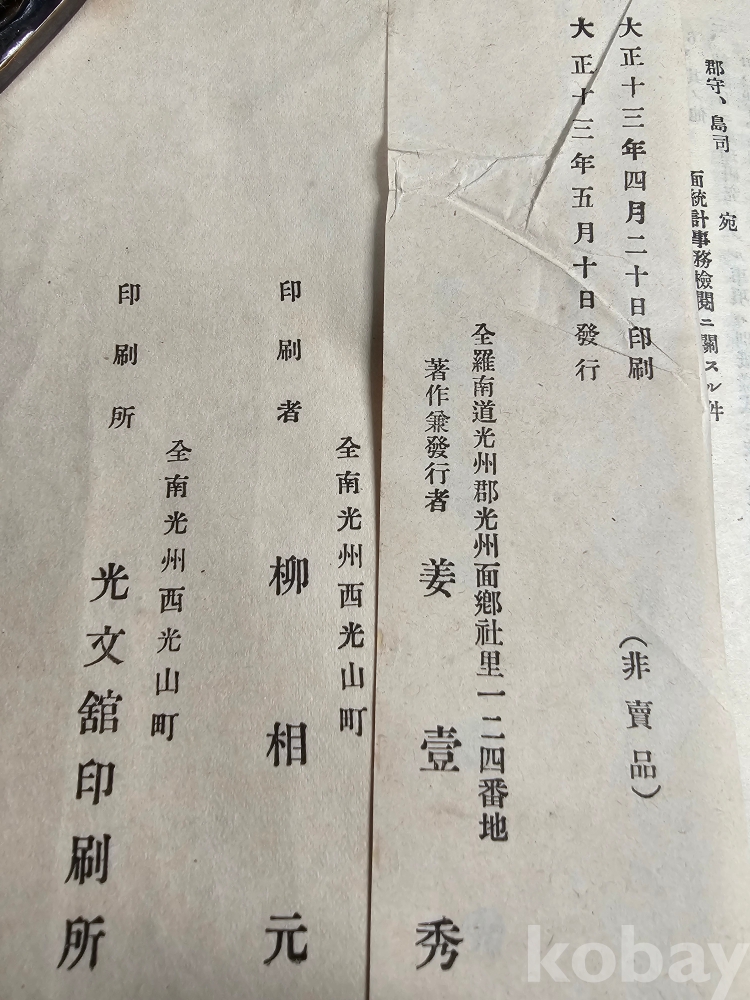 郡守、島司 宛
面統計事務檢閱ニ關スル件
大正十三年四月二十日印刷
大正十三年五月十日發行
(非賣品)
全羅南道光州郡光州面鄕社里一二四番地
著作兼發行者 姜壹秀
全南光州西光山町
印刷者 柳相元
全南光州西光山町
印刷所 光文舘印刷所
kobay